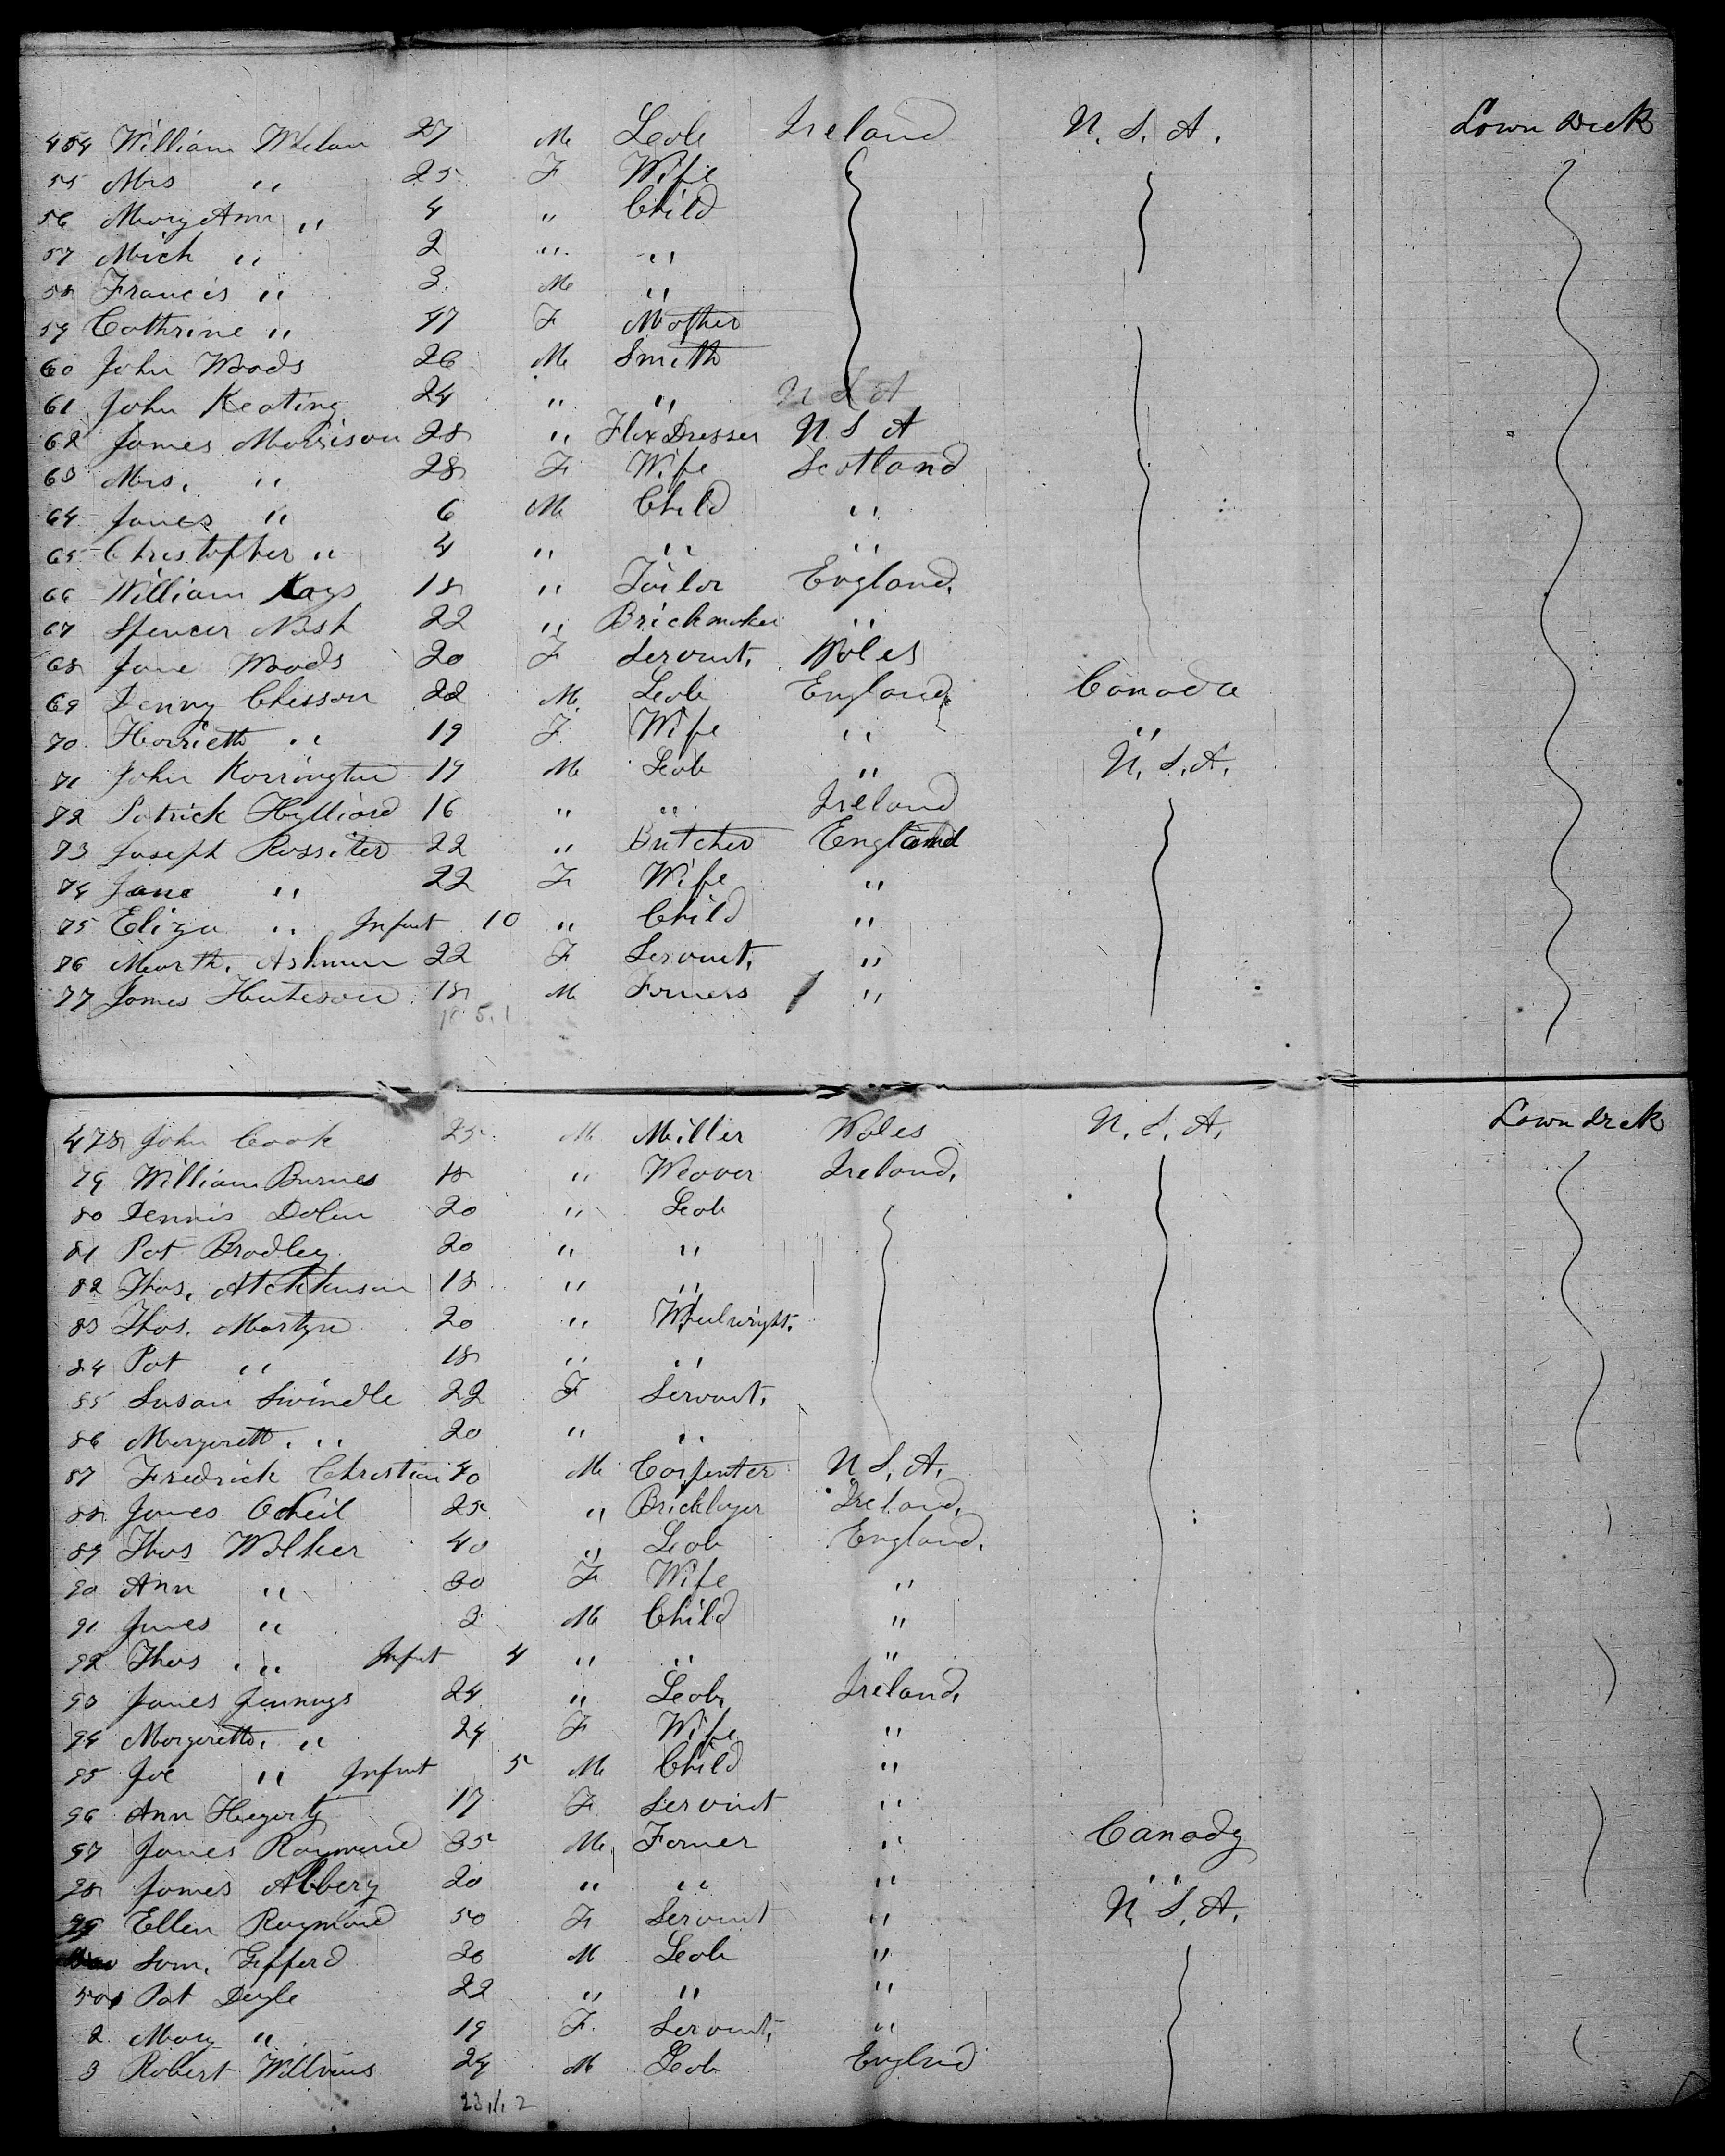 454 William Whelan 27 M Leob Ireland U. S. A. Lown Deck
55 Mrs " 25 F Wife
56 Mary Ann " 4 " Child
57 Mich " 2 " "
58 Francis " 3 M "
59 Cathrine " 47 F Mother
60 John Woods 26 M Smith
61 John Keating 24 " " U S A
62 James Morrison 28 " Flax Dresser U S A
63 Mrs. " 28 F Wife Scotland
64 James " 6 M Child "
65 Christopher " 4 " " "
66 William Kays 18 " Tailor England.
67 Spencer Nash 22 " Brickmaker "
68 Jane Woods 20 F Servant. Wales
69 Denny Chesson 22 M Leob England Canada
70 Harrieth " 19 F Wife " "
71 John Korrington 19 M Leob " U. S. A.
72 Patrick Hylliard 16 " " Ireland
73 Joseph Rossiter 22 " Butcher England
74 Jane " 22 F Wife "
75 Eliza " Infant 10 " Child "
76 Marth. Ashman 22 F Servant. "
77 James Huteson 18 M Farmers "
478 John Cook 25 M Miller Wales U. S. A. Lown Deck
79 William Burnes 18 " Weaver Ireland.
80 Dennis Dolan 20 " Leob
81 Pat Bradley 20 " "
82 Thos. 18 " "
83 Thos. Martyn 20 " Wheelwright.
84 Pat " 18 " "
85 Susan Swindle 22 F Servant.
86 Margarett. " 20 " "
87 Fredrick Christian 40 M Carpenter U S. A.
88 James Oneil 25 " Bricklayer Ireland.
89 Thos Walker 40 " Leob England.
90 Ann " 30 F Wife "
91 James " 3 M Child "
92 Thos. " Infant 4 " " "
93 James Jennings 24 " Leob. Ireland.
94 Margarett. " 24 F Wife "
95 Joe " Infant 5 M Child "
96 Ann Hegarty 17 F Servant "
97 James Raymond 35 M Farmer " Canady
98 James Albery 20 " " " "
99 Ellen Raymond 50 F Servant " U. S. A.
Sam. Gifferd 30 M Leob "
501 Pat Doyle 22 " " "
2 Mary " 19 F Servant. "
3 Robert Willvins 24 M Leob Englnd